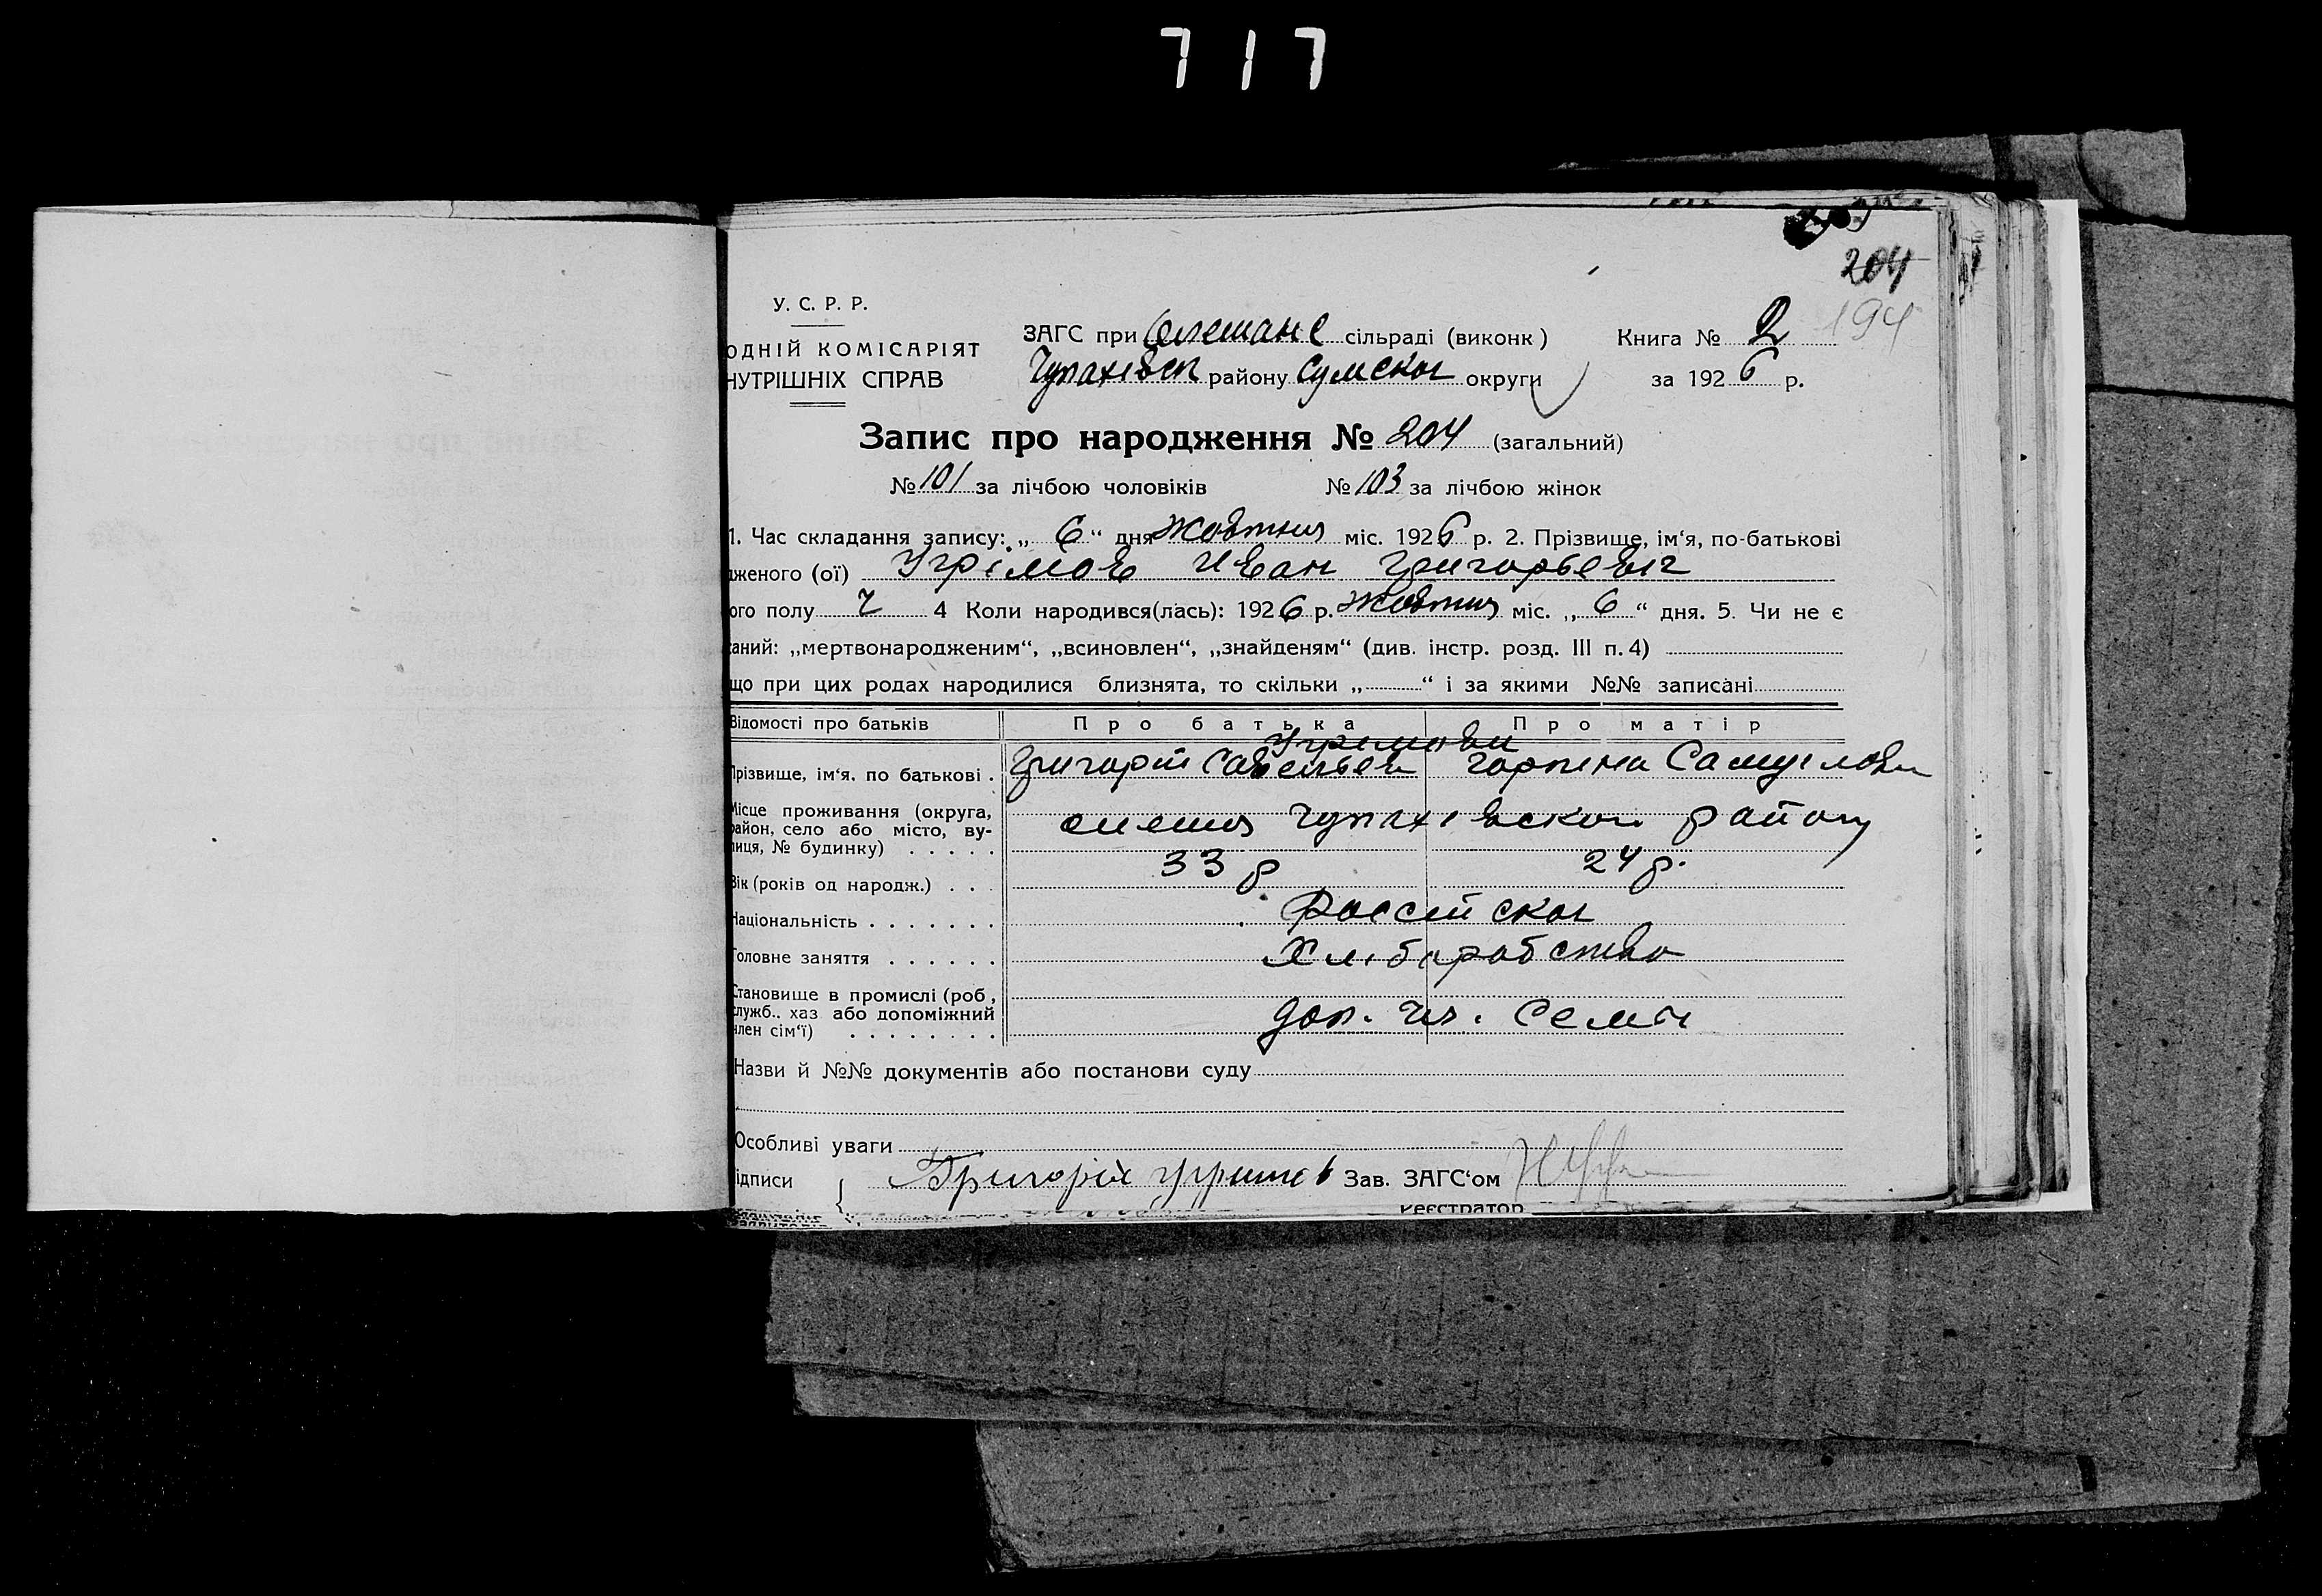 717
204
194
У. С. Р. Р.
ОДНІЙ КОМІСАРІЯТ
НУТРІШНІХ СПРАВ
ЗАГС при Олешанс сільраді (виконк)
Чупахівск району Сумскоі округи
Книга № 2
за 1926 р.
Запис про народження № 204 (загальний)
№ 101 за лічбою чоловіків № 103 за лічбою жінок
1. Час складання запису: „ 6 “ дня Жовтня міс. 1926 р. 2. Прізвище, ім‘я, по-батькові
дженого (ої) Угрімов Иван Григорьевіч
ого полу ч 4 Коли народився(лась): 1926 р. Жовтня міс. „ 6 “ дня. 5. Чи не є
аний: „мертвонародженим“, „всиновлен“, „знайденям“ (див. інстр. розд. III п. 4)
що при цих родах народилися близнята, то скільки „ “ і за якими №№ записані
Відомості про батьків Про батька Про матір
Угрімови
Прізвище, ім‘я. по батькові . Григорій Савельев Горпина Самуілови
Місце проживання (округа,
район, село або місто, ву-
лиця, № будинку) . . . . . Олешня Чупахівскои району
Вік (років од народж.) . . . 33 р 24 р.
Національність . . . . . . . Россійскоі
Головне заняття . . . . . . Хліборобство
Становище в промислі (роб,
служб.. хаз або допоміжний
член сім‘ї) . . . . . . . . доп. чл. Семьі
Назви й №№ документів або постанови суду
Особливі уваги
ідписи { Григорій Угримов Зав. ЗАГС‘ом
Реєстратор